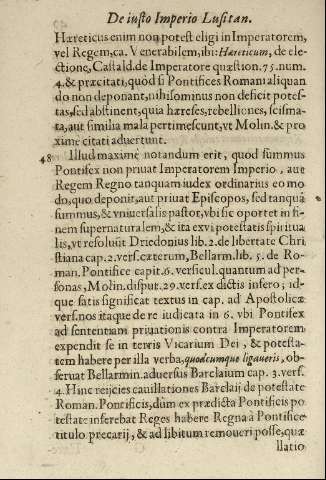 De iusto Imperio Lusitan.
Hæreticus enim non potest eligi in Imperatorem,
vel Regem, ca. Venerabilem, ibi: Hæreticum, de ele-
ctione, Castald. de Imperatore quæstion. 75. num.
4. & præcitati, quòd si Pontifices Romani aliquan
do non deponant, nihilominus non deficit potes-
tas, sed abstinent, quia hæreses, rebelliones, scisma-
ta, aut similia mala pertimescunt, vt Molin. & pro
ximè citati aduertunt.
48 Illud maximè notandum erit, quod summus
Pontifex non priuat Imperatorem Imperio, aut
Regem Regno tanquam iudex ordinarius eo mo-
do, quo deponit, aut priuat Episcopos, sed tanquã
summus, & vniuersalis pastor, vbi sic oportet in fi-
nem supernaturalem, & ita ex vi potestatis spiritua
lis, vt resoluũt Driedonius lib. 2. de libertate Chri
stiana cap. 2. vers. cæterum, Bellarm. lib. 5. de Ro-
man. Pontifice capit. 6. versicul. quantum ad per-
sonas, Molin. disput. 29. vers. ex dictis infero; id-
que satis significat textus in cap. ad Apostolicæ
vers. nos itaque de re iudicata in 6. vbi Pontifex
ad sententiam priuationis contra Imperatorem
expendit se in terris Vicarium Dei, & potesta-
tem habere per illa verba, quodcumque ligaueris, ob-
seruat Bellarmin. aduersus Barclaium cap. 3. vers.
4. Hinc reijcies cauillationes Barclaij de potestate
Roman. Pontificis, dũm ex prædicta Pontificis po
testate inferebat Reges habere Regna à Pontifice
titulo precarij, & ad libitum remoueri posse, quæ
llatio